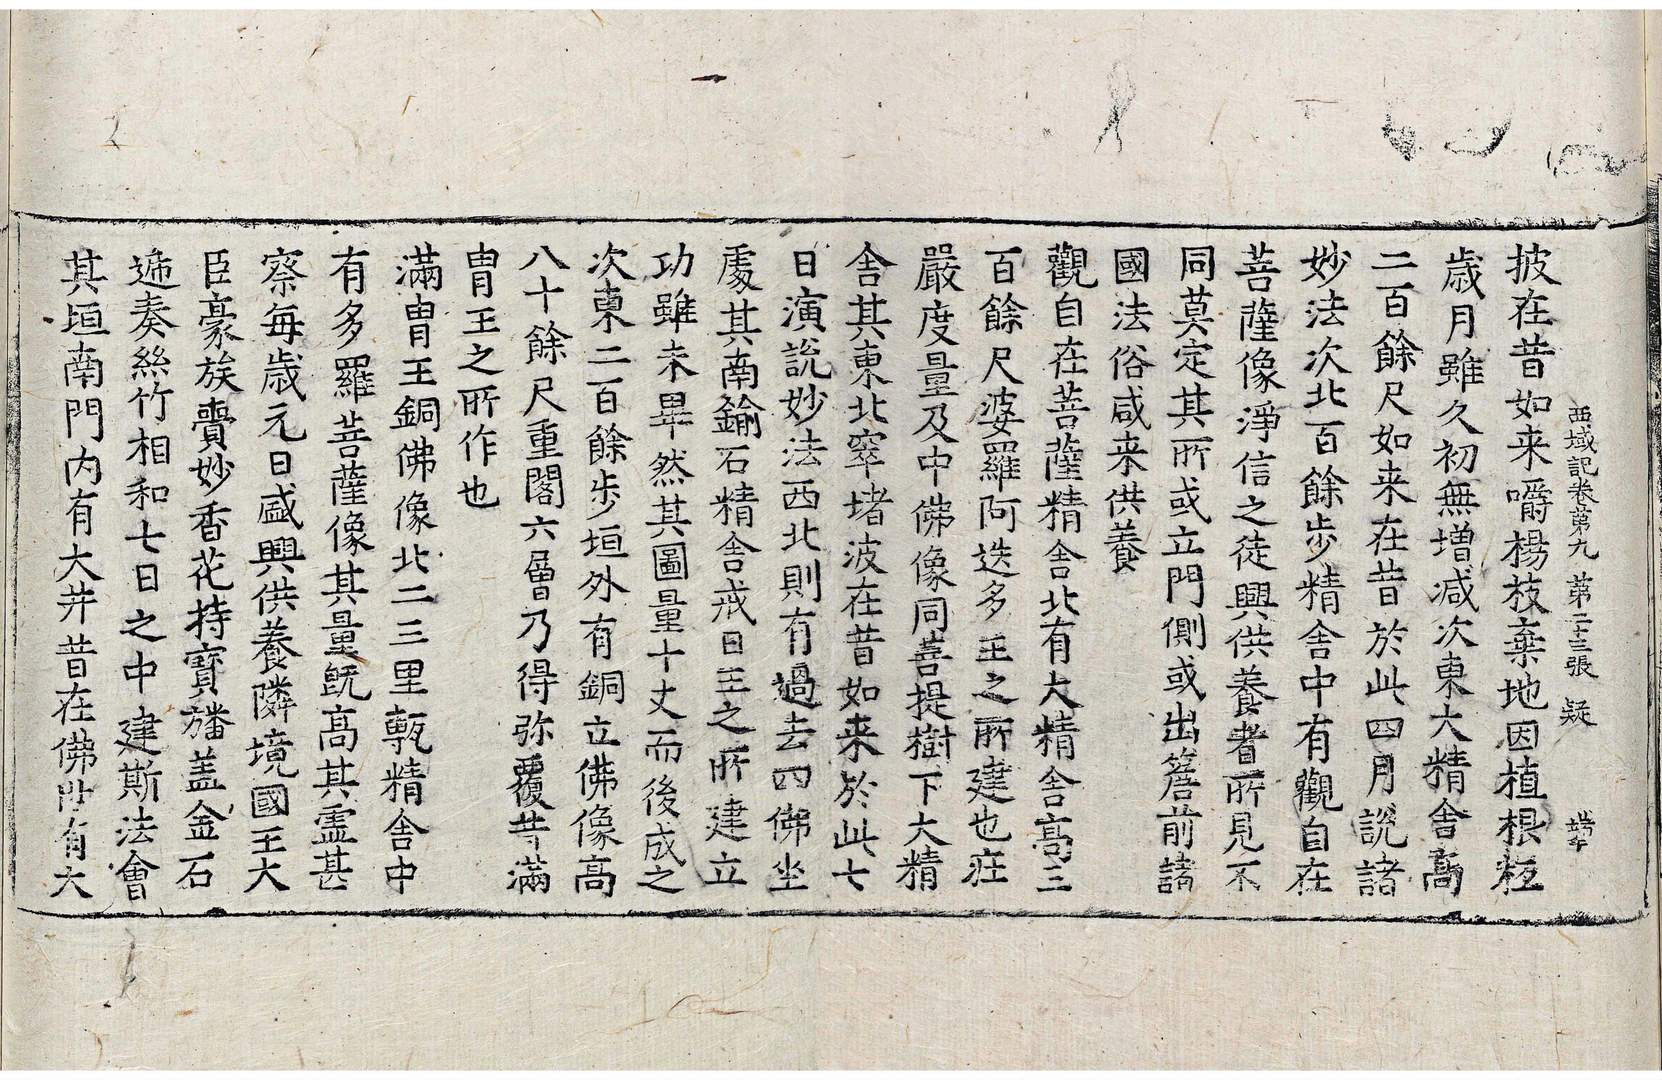 西域記卷第九 第二十三張 疑
披在昔如来嚼楊枝棄地因植根柢
歳月雖久初無増减次東大精舎髙
二百餘尺如来在昔於此四月説諸
妙法次北百餘步精舎中有觀自在
菩薩像淨信之徒興供養者所見不
同莫定其所或立門側或出簷前諸
國法俗咸来供養
觀自在菩薩精舎北有大精舎髙三
百餘尺婆羅阿迭多王之所建也莊
嚴度量及中佛像同菩提樹下大精
舎其東北窣堵波在昔如来於此七
日演説妙法西北則有過去四佛坐
處其南鍮石精舎戒日王之所建立
功雖未畢然其圖量十丈而後成之
次東二百餘步垣外有銅立佛像髙
八十餘尺重閣六層乃得弥覆昔滿
胄王之所作也
滿胄王銅佛像北二三里甎精舎中
有多羅菩薩像其量既髙其靈甚
察每歳元日盛興供養隣境國王大
臣豪族賷妙香花持寶旛盖金石
遞奏絲竹相和七日之中建斯法會
其垣南門内有大井昔在佛世有大